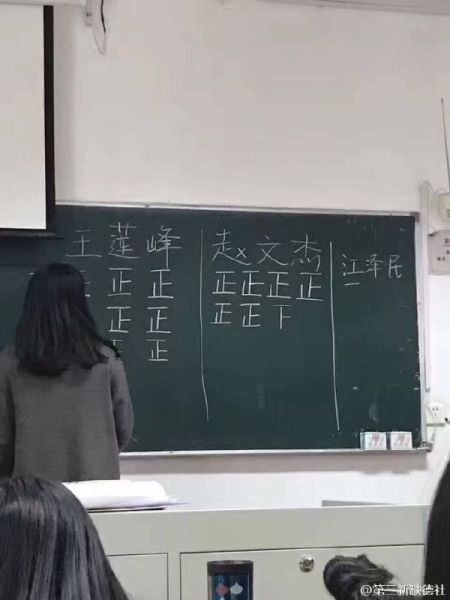 王莲峰
正 正
正 正
正
赵文杰
正正正正
正正下
江泽民
一
@第三新缺德社